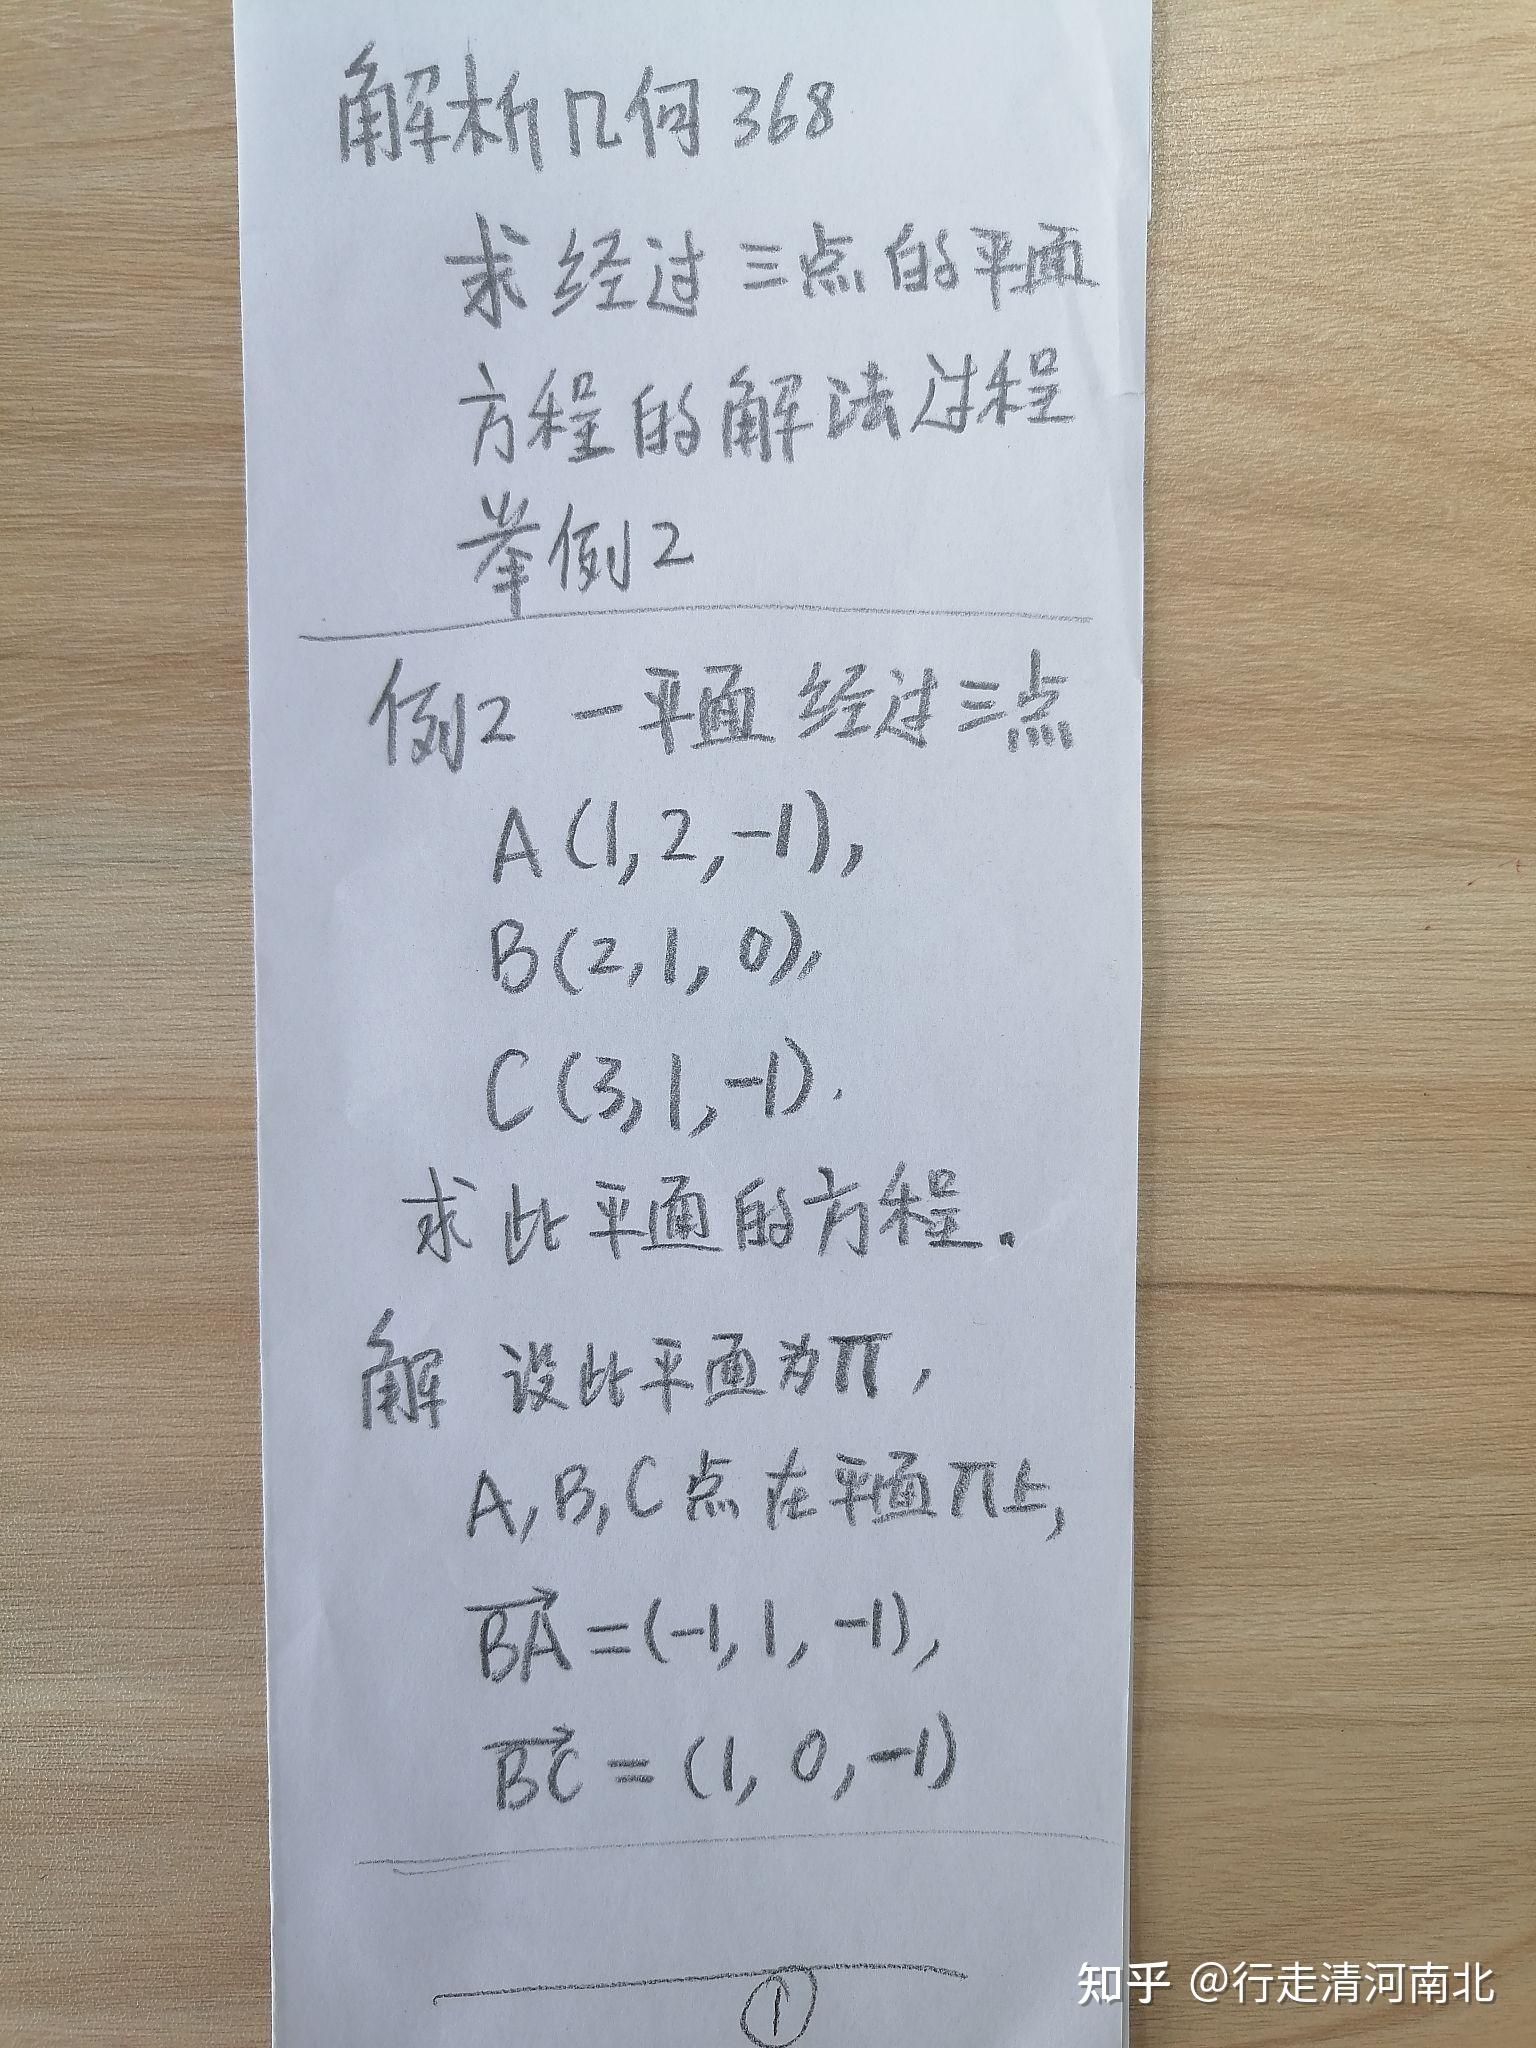 解析几何368
求经过三点的平面
方程的解法过程
举例2
例2 一平面经过三点
A(1,2,-1),
B(2,1,0),
C(3,1,-1).
求此平面的方程.
解 设此平面为π,
A,B,C点在平面π上,
BA=(-1,1,-1),
BC=(1,0,-1)
①
知乎 @行走清河南北